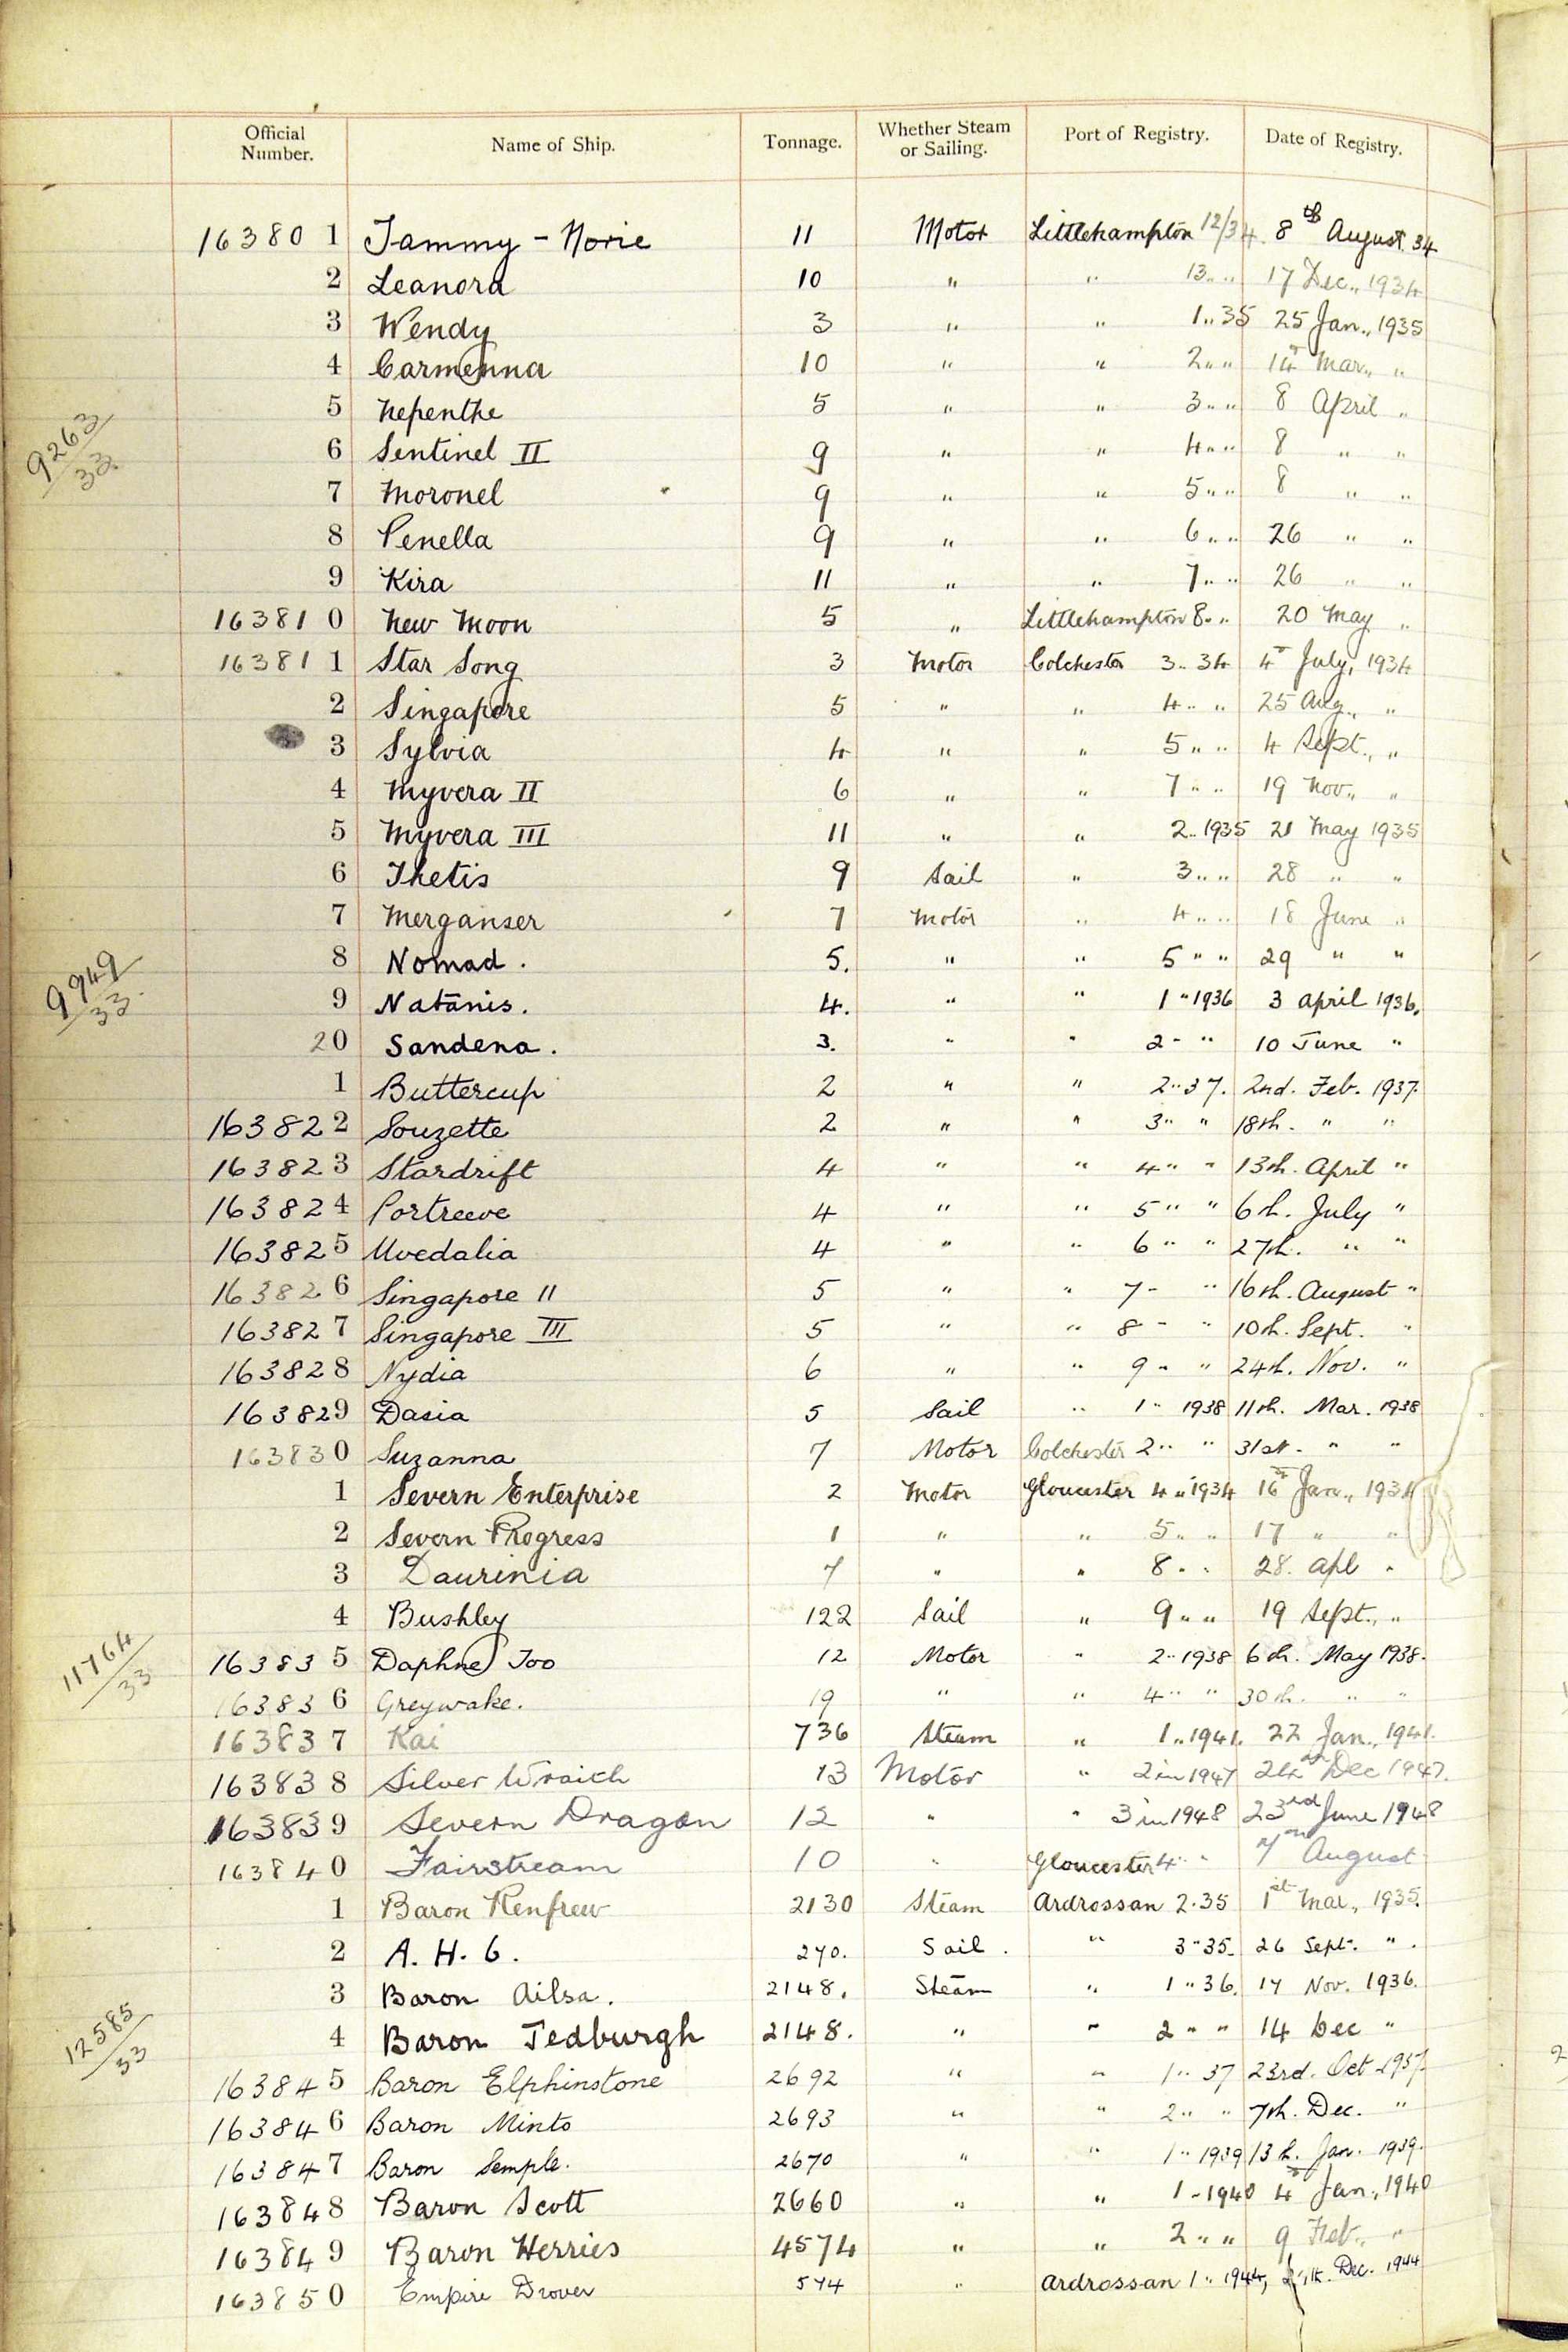 Official Number. Name of Ship. Tonnage. Whether Steam or Sailing. Port of Registry. Date of Registry.
163801 Tammy - Norie 11 Motor Littlehampton 12/34. 8th August 34
2 Leanora 10 " " 13 " " 17 Dec., 1934
3 Wendy 3 " " 1 " 35 25 Jan., 1935
4 Carmenna 10 " " 2 " " 14 Mar., "
5 Nepenthe 5 " " 3 " " 8 April "
9263/33
6 Sentinel II 9 " " 4 " " 8 " "
7 Moronel 9 " " 5 " " 8 " "
8 Penella 9 " " 6 " " 26 " "
9 Kira 11 " " 7 " " 26 " "
163810 New Moon 5 " Littlehampton 8 " " 20 May "
163811 Star Song 3 Motor Colchester 3 " 34 4th July, 1934
2 Singapore 5 " " 4 " " 25 Aug., "
3 Sylvia 4 " " 5 " " 4 Sept., "
4 Myvera II 6 " " 7 " " 19 Nov., "
5 Myvera III 11 " " 2 " 1935 21 May 1935
6 Thetis 9 Sail " 3 " " 28 " "
7 Merganser 7 Motor " 4 " " 18 June "
8 Nomad. 5. " " 5 " " 29 " "
9949/33
9 Natanis. 4. " " 1 " 1936 3 April 1936.
20 Sandena. 3. " " 2 " " 10 June "
1 Buttercup 2 " " 2 " 37. 2nd. Feb. 1937.
163822 Souzette 2 " " 3 " " 18th. " "
163823 Stardrift 4 " " 4 " " 13th. April "
163824 Portreeve 4 " " 5 " " 6th. July "
163825 Uvedalia 4 " " 6 " " 27th. " "
163826 Singapore II 5 " " 7 " " 16th. August "
163827 Singapore III 5 " " 8 " " 10th. Sept. "
163828 Nydia 6 " " 9 " " 24th. Nov. "
163829 Dasia 5 Sail " 1 " 1938 11th. Mar. 1938
163830 Suzanna 7 Motor Colchester 2 " " 31st. " "
1 Severn Enterprise 2 Motor Gloucester 4 " 1934 16th Jan., 1934
2 Severn Progress 1 " " 5 " " 17 " "
3 Daurinia 7 " " 8 " " 28. Apl "
4 Bushley 122 Sail " 9 " " 19 Sept., "
11764/33
163835 Daphne Too 12 Motor " 2 " 1938 6th. May 1938.
163836 Greywake. 19 " " 4 " " 30th. " "
163837 Kai 736 Steam " 1 " 1941. 22 Jan., 1941.
163838 Silver Wraith 13 Motor " 2 in 1947 24th Dec 1947.
163839 Severn Dragon 12 " " 3 in 1948 23rd June 1948
163840 Fairstream 10 " Gloucester 4 " " 7th August
1 Baron Renfrew 2130 Steam Ardrossan 2.35 1st Mar., 1935.
2 A. H. 6. 270. Sail. " 3 " 35. 26 Sept. ".
3 Baron Ailsa. 2148. Steam " 1 " 36. 17 Nov. 1936.
12585/33
4 Baron Jedburgh 2148. " " 2 " " 14 Dec "
163845 Baron Elphinstone 2692 " " 1 " 37 23rd. Oct 1937.
163846 Baron Minto 2693 " " 2 " " 7th. Dec. "
163847 Baron Semple. 2670 " " 1 " 1939 13th. Jan. 1939.
163848 Baron Scott 2660 " " 1 " 1940 4th Jan., 1940
163849 Baron Herries 4574 " " 2 " " 9 Feb., "
163850 Empire Drover 574 " Ardrossan 1 " 1944, Dec. 1944